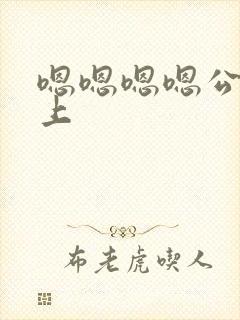 嗯嗯嗯嗯公
上
布老虎喫人